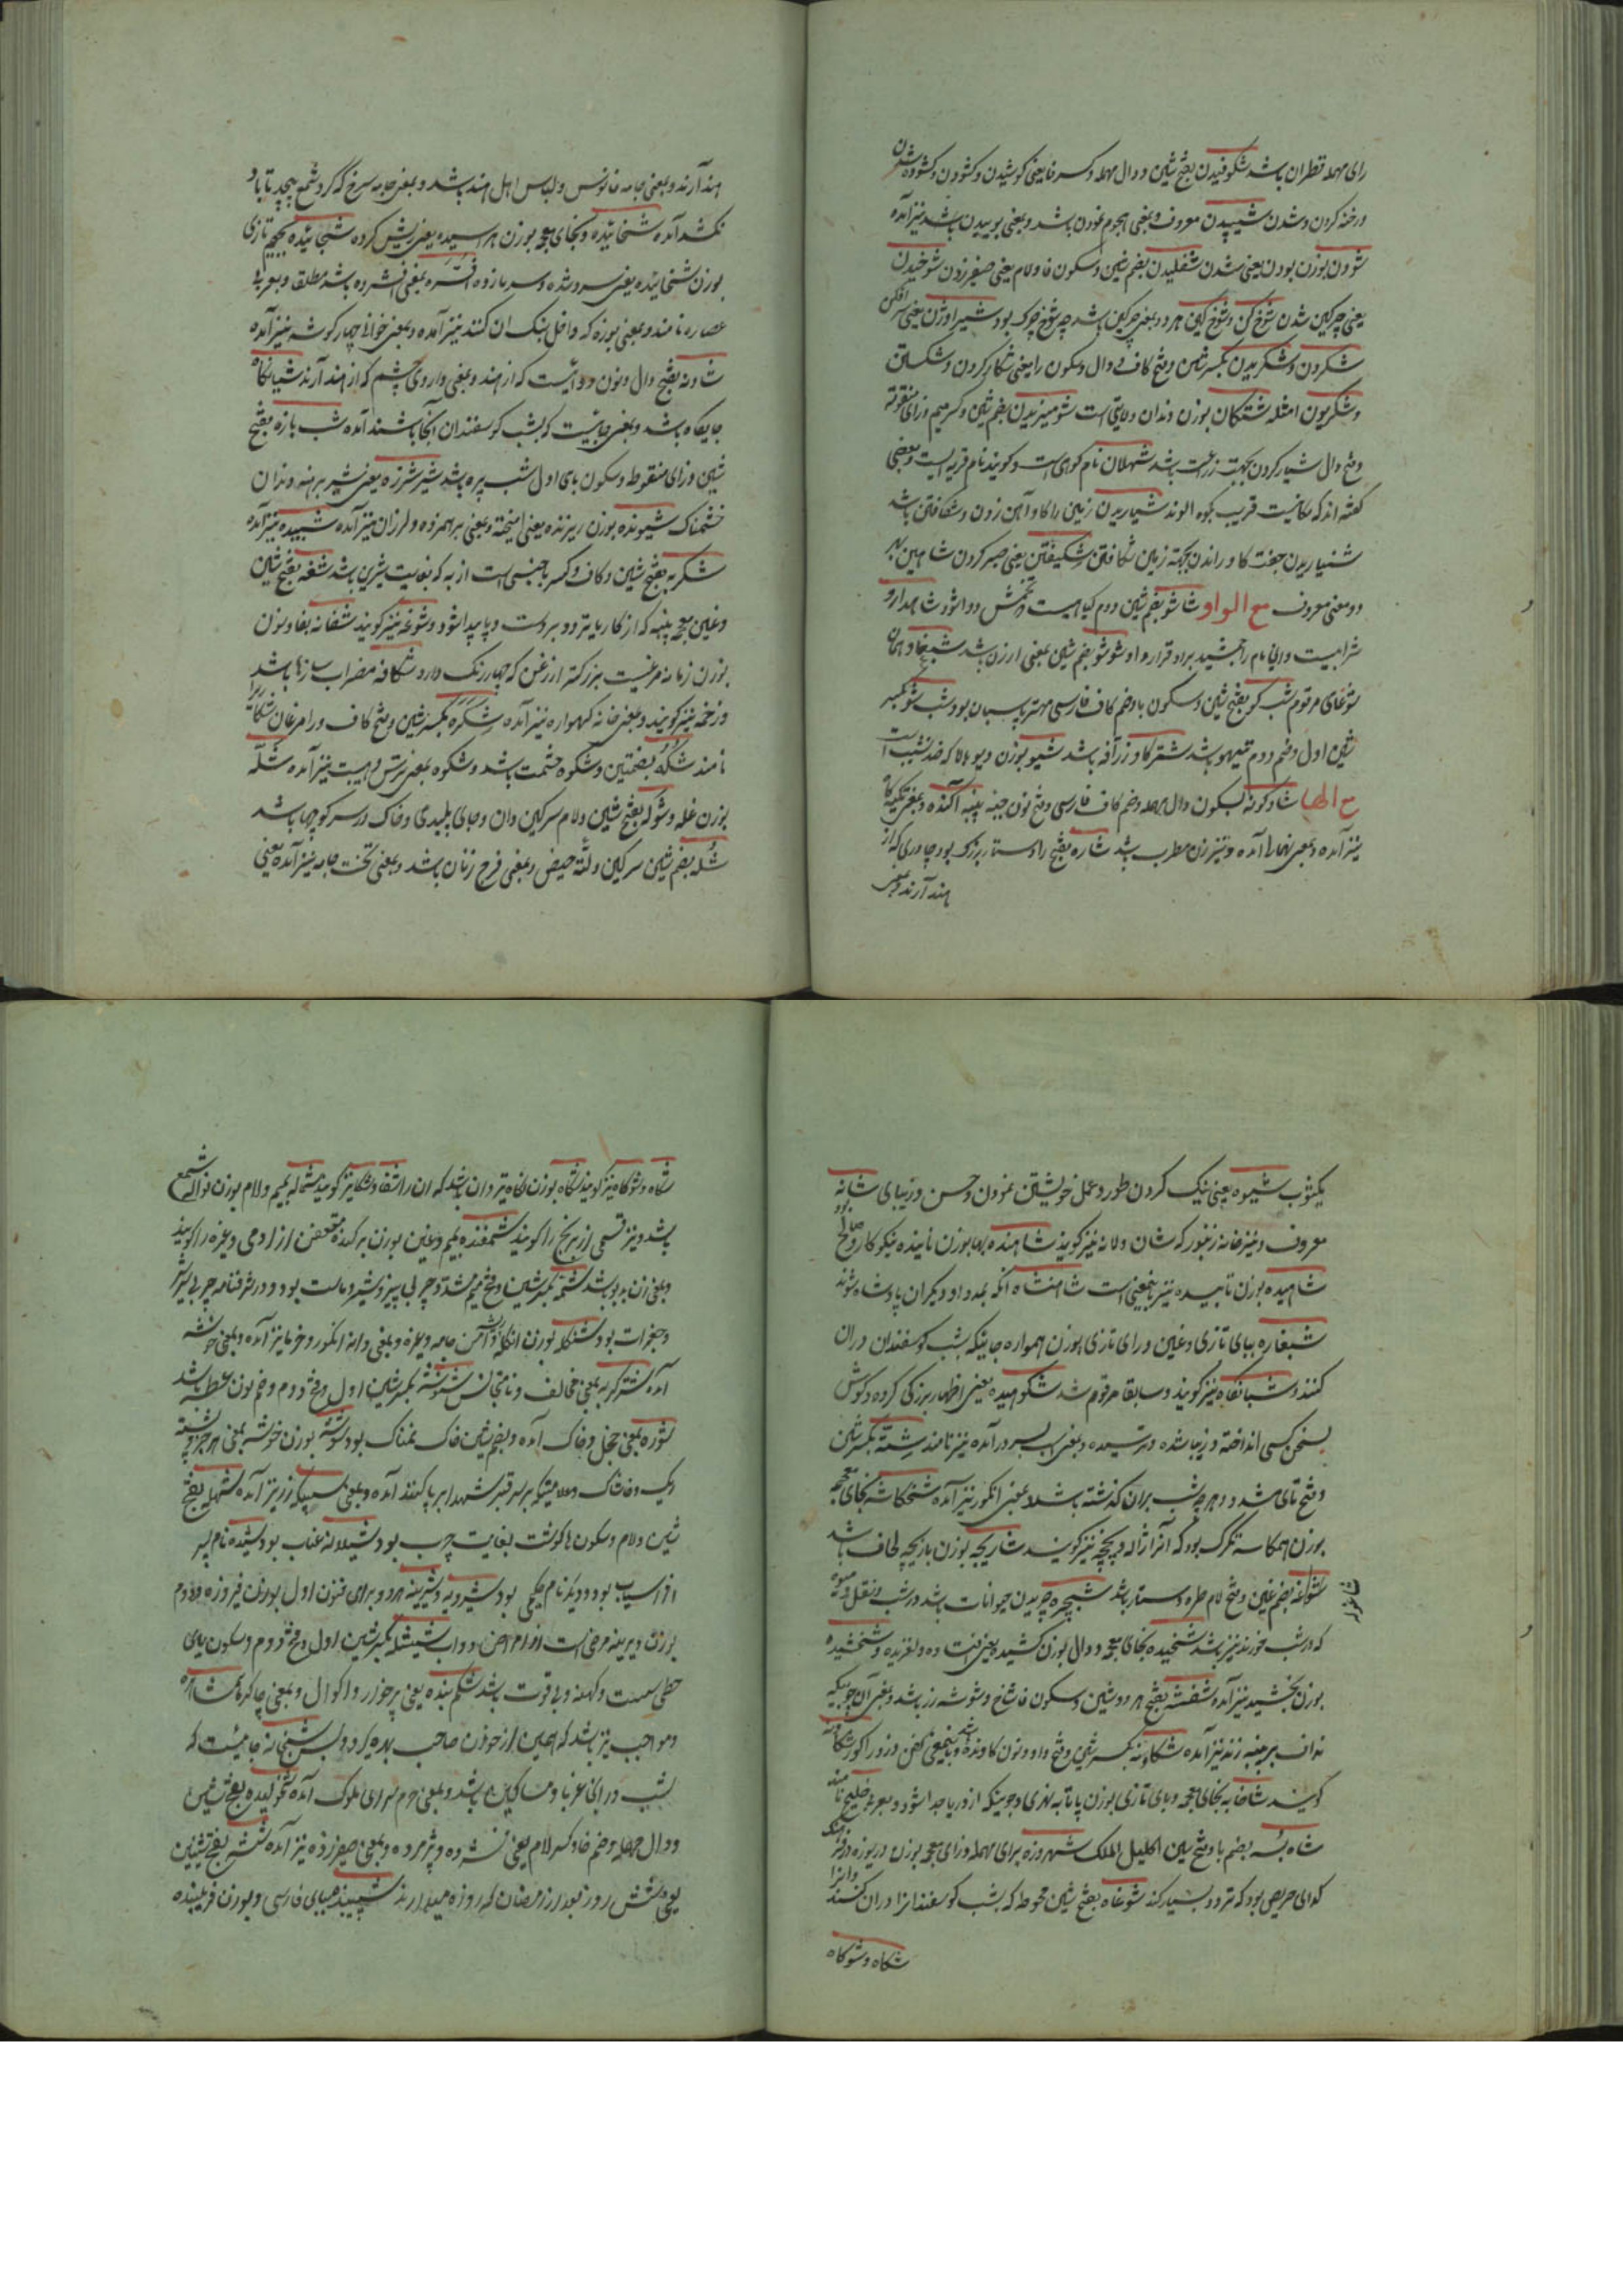 رای مهمله قطران باشد شکوفیدن بفتح شین و دال مهمله و کسر فا یعنی کوشیدن و کشودن و کشوده شدن
و رخنه کردن و شدن شیبیدن معروف و بمعنی هجوم نمودن باشد و بمعنی بوییدن باشد نیز آمده
شودن بوزن بودن یعنی شدن شفلیدن بضم شین و سکون فا و لام یعنی صفیر زدن شوخیدن
یعنی چرکین شدن شوخ کن و شوخ کین هر دو بمعنی چرکین باشد چه شوخ چرک بود شیر اوژن یعنی شیر افکن
شکردن و شکریدن بکسر شین و فتح کاف و دال و سکون را یعنی شکار کردن و شکستن
و شکریون امثله شتکان بوزن دندان ولایتی است شومیزیدن بضم شین و کسر میم و زای منقوطه
و فتح دال شیار کردن بجهت زراعت باشد شهلان نام کوهی است و کویند نام قریه ایست و بعضی
کفته اند که مکانیست قریب بکوه الوند شیاریدن زمین را با کاو آهن زدن و شکافتن باشد
شنیاریدن جفت کاو راندن بجهة زمین شکافتن شکیفتن یعنی صبر کردن شاهین بهر
دو معنی معروف مع الواو شاشو بضم شین دوم کیاهیست و تخمش دوا شود شاهدارو
شرابیست و این نام را جمشید براو قرار داد شوشو بضم شین بمعنی ارزن باشد شبغاو همان
شوغای مرقوم شب کو بفتح شین و سکون با و ضم کاف فارسی مهتر پاسبان بود شب شو بکسر
شین اول و ضم دوم تیهو باشد شترکاو زرافه باشد شیو بوزن دیو بالا که ضد نشیب است
مع الها شادکونه بسکون دال مهمله و ضم کاف فارسی و فتح نون جبه پنبه آکنده و بمعنی تکیه کاه
نیز آمده و بمعنی نهالی آمده و نیز زن مطرب باشد شاره بفتح را دستار بزرک بود و چادری که از
هند آرند و بمعنی
هند آرند و بمعنی جامه فانوس و لباس اهل هند باشد و بمعنی جامه سرخ که کرد شمع پیچد تا باد
نکشد آمده شخائیده و بخای معجمه بوزن هراسیده یعنی ریش کرده شجائیده بجیم تازی
بوزن شخائیده یعنی سرد شده و سرمازده افشره بمعنی افشرده باشد مطلقا و بعربی
عصاره نامند و بمعنی بوزه که داخل بنک آن کنند نیز آمده و بمعنی خوانی چهار کوشه نیز آمده
شادنه بفتح دال و نون دوائیست که از هند و بمعنی داروی چشم که از هند آرند شبانکاه
جایکاه باشد و بمعنی جائیست که شب کوسفندان آنجا باشند آمده شب بازه بفتح
شین و زای منقوطه و سکون بای اول شب پره باشد شیر شرزه یعنی شیر برهنه دندان
خشمناک شیونده بوزن ریزنده یعنی آمیخته و بمعنی برهم زده و لرزان نیز آمده شیبیده نیز آمده
شکربه بفتح شین و کاف و کسر با جنسی است از به که بغایت شیرین باشد شغه بفتح شین
و غین معجمه پینه که از کار یا تردد بر دست و پا پیدا شود و شوغه نیز کویند شفانه بفا و نون
بوزن زمانه مرغیست بزرکتر از زغن که چهار رنک دارد شکافه مضراب سازها باشد
و زخمه نیز کویند و بمعنی خانه کهواره نیز آمده شکره بکسر شین و فتح کاف و را مرغان شکاری را
نامند شکه بضمتین و شکوه حشمت باشد و شکوه بمعنی ترس و هیبت نیز آمده شله
بوزن غله و شوله بفتح شین و لام سرکین دان و جای پلیدی و خاک در سر کوچها باشد
شله بضم شین سرکین و لته حیض و بمعنی فرج زنان باشد و بمعنی تخت جامه نیز آمده یعنی
یکتوب شیوه یعنی نیک کردن طور و عمل خویشتن نمودن و حسن و زیبای شانه
معروف و نیز خانه زنبور که شان و لانه نیز کویند شاهنده بها بوزن ناینده نیکوکار و صالح بود
شاهیده بوزن تابیده نیز باینمعنی است شاهنشاه آنکه بمدد او دیکران پادشاه شوند
شبغاره ببای تازی و غین و رای تازی بوزن همواره جاییکه شب کوسفندان دران
کنند و شبانکاه نیز کویند و سابقا مرقوم شد شکوهیده یعنی اظهار بزرکی کرده و کوش
بسخن کسی انداخته و زیبا شده و ترسیده و بمعنی بسر درآمده نیز نامند شته بکسر شین
و فتح تای مشدد هرچه شب بران کذشته باشد و بمعنی انکور نیز آمده شخکاسه بخای معجمه
بوزن همکاسه تکرک بود که آنرا ژاله و یخچه نیز کویند شاریجه بوزن بازیچه لحاف باشد
شوغله بضم غین و فتح لام طره دستار باشد شبچره چریدن حیوانات باشد در شب و نقل و میوه
که در شب خورند نیز باشد شخیده بخای معجمه و دال بوزن کشیده یعنی افتاده و لغزیده و شخشیده
بوزن بخشیده نیز آمده شفشه بفتح هر دو شین و سکون فا شاخ و شوشه زر باشد و بمعنی آن چوبیکه
نداف بر پنبه زند نیز آمده شکاونه بکسر شین و فتح واو و نون کاونده و باینمعنی کفن دزد را کور شکاونه
کویند شاخابه بخای معجمه و بای تازی بوزن پاتابه نهری و جوییکه از دریا جدا شود و بعربی خلیج نامند
شاه بسه بضم با و فتح سین اکلیل الملک شهروزه برای مهمله و زای معجمه بوزن دریوزه در هر
کدای حریص بود که تردد بسیار کند شوغاه بفتح شین محوطه که شب کوسفندانرا دران کنند
شکاه و شوکاه
شکاه و شوکاه نیز کویند شکاه بوزن نکاه تیردان باشد که آن را شغا و شکا نیز کویند شمله بمیم و لام بوزن نواله شمع
باشد و نیز قسمی از برنج را کویند شمغنده بمیم و غین بوزن برکنده متعفن از آدمی و غیره را کویند
و بمعنی زن بدبو باشد شمه بکسر شین و فتح میم مشدد چربی پنیر و شیر و ماست بود و در شرفنامه چربی شیر
و جغرات بود شنکله بوزن انکله ریشه دامن جامه و غیره و بمعنی دانه انکور و خرما نیز آمده و بمعنی خوشه
آمده شترکربه بمعنی مخالف و نامتجانس شنوشه بکسر شین اول و فتح دوم و ضم نون عطسه باشد
شوره بمعنی خجل و خاک آمده و بضم شین خاک نمناک بود شوشه بوزن خوشه بمعنی هر چیز و پشته
ریک و خاشاک و علامتیکه بر سر قبر شهدا برپا کنند آمده و بمعنی سبیکه زر نیز آمده شهله بفتح
شین و لام و سکون ها کوشت بغایت چرب بود شیلانه عناب بود شیده نام پسر
افراسیاب بود و دیکر نام حکیمی بود شیرویه و شیرینه هر دو برای فنون اول بوزن فیروزه و دوم
بوزن دیرینه مرضی است از امراض دواب شیشله بکسر شین اول و فتح دوم و سکون یای
حطی سست و کهنه و بی قوت باشد شکم بنده یعنی پرخوار و اکوال و بمعنی چاکر باشد شاهره
و مواجب نیز باشد که همین از خوردن صاحب بهره بود و بس شبخانه جائیست که
شب درانی غربا و مساکین باشد و بمعنی حرم سرای ملوک آمده شخولیده بفتح شین
و دال مهمله و ضم خا و کسر لام یعنی افسرده و پژمرده و بمعنی صفیر زده نیز آمده شش بفتح شین
یعنی شش روز بعد از رمضان که روزه میدارند شیبنده ببای فارسی و بوزن فریبنده